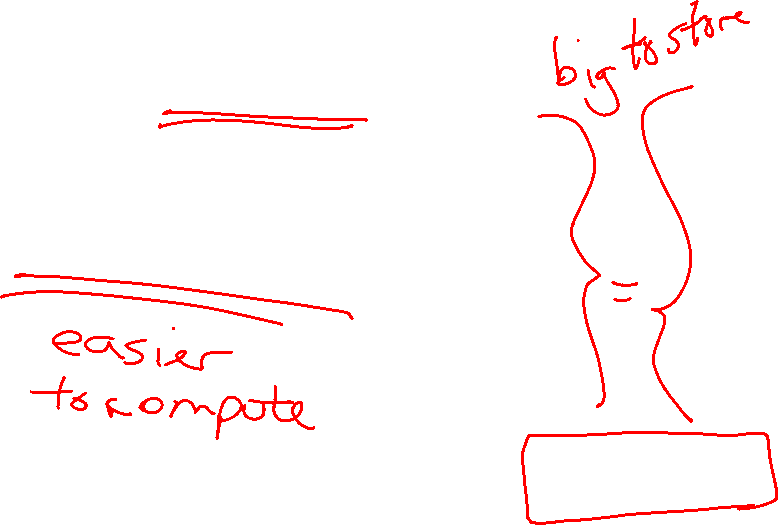 big to store
easier
to compute